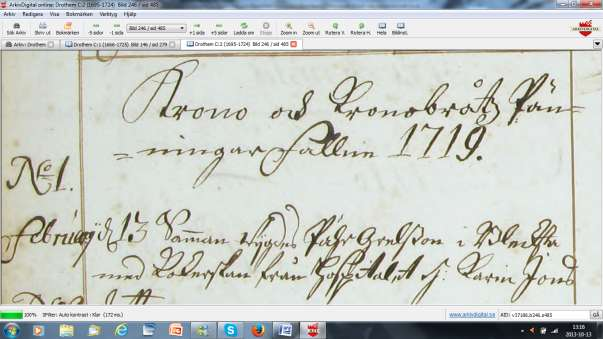 ArkivDigital online: Drothem C:2 (1695-1724) Bild 246 / sid 485
Arkiv Redigera Visa Bokmärken Verktyg Hjälp
Sök Arkiv Skriv ut Bokmärken -5 sidor -1 sida Bild 246 / sid 485 +1 sida +5 sidor Ladda om Stoppa Zoom in Zoom ut Rotera V. Rotera H. Helsk. Bildinst. ARKIVDIGITAL
Arkiv: Drothem Drothem C:1 (1666-1725) Bild 279 / sid 279 Drothem C:2 (1695-1724) Bild 246 / sid 485
Krono och Kronobråtz Pän=
=ningar Fallne 1719.
No 1.
d 13 Samman Påhr i
med från Hospitalet h: Karin Jons
100% IFilter: Auto kontrast : Klar (172 ms.) www.arkivdigital.se AID: v37188.b246.s485 GÅ
13:16
2013-10-13